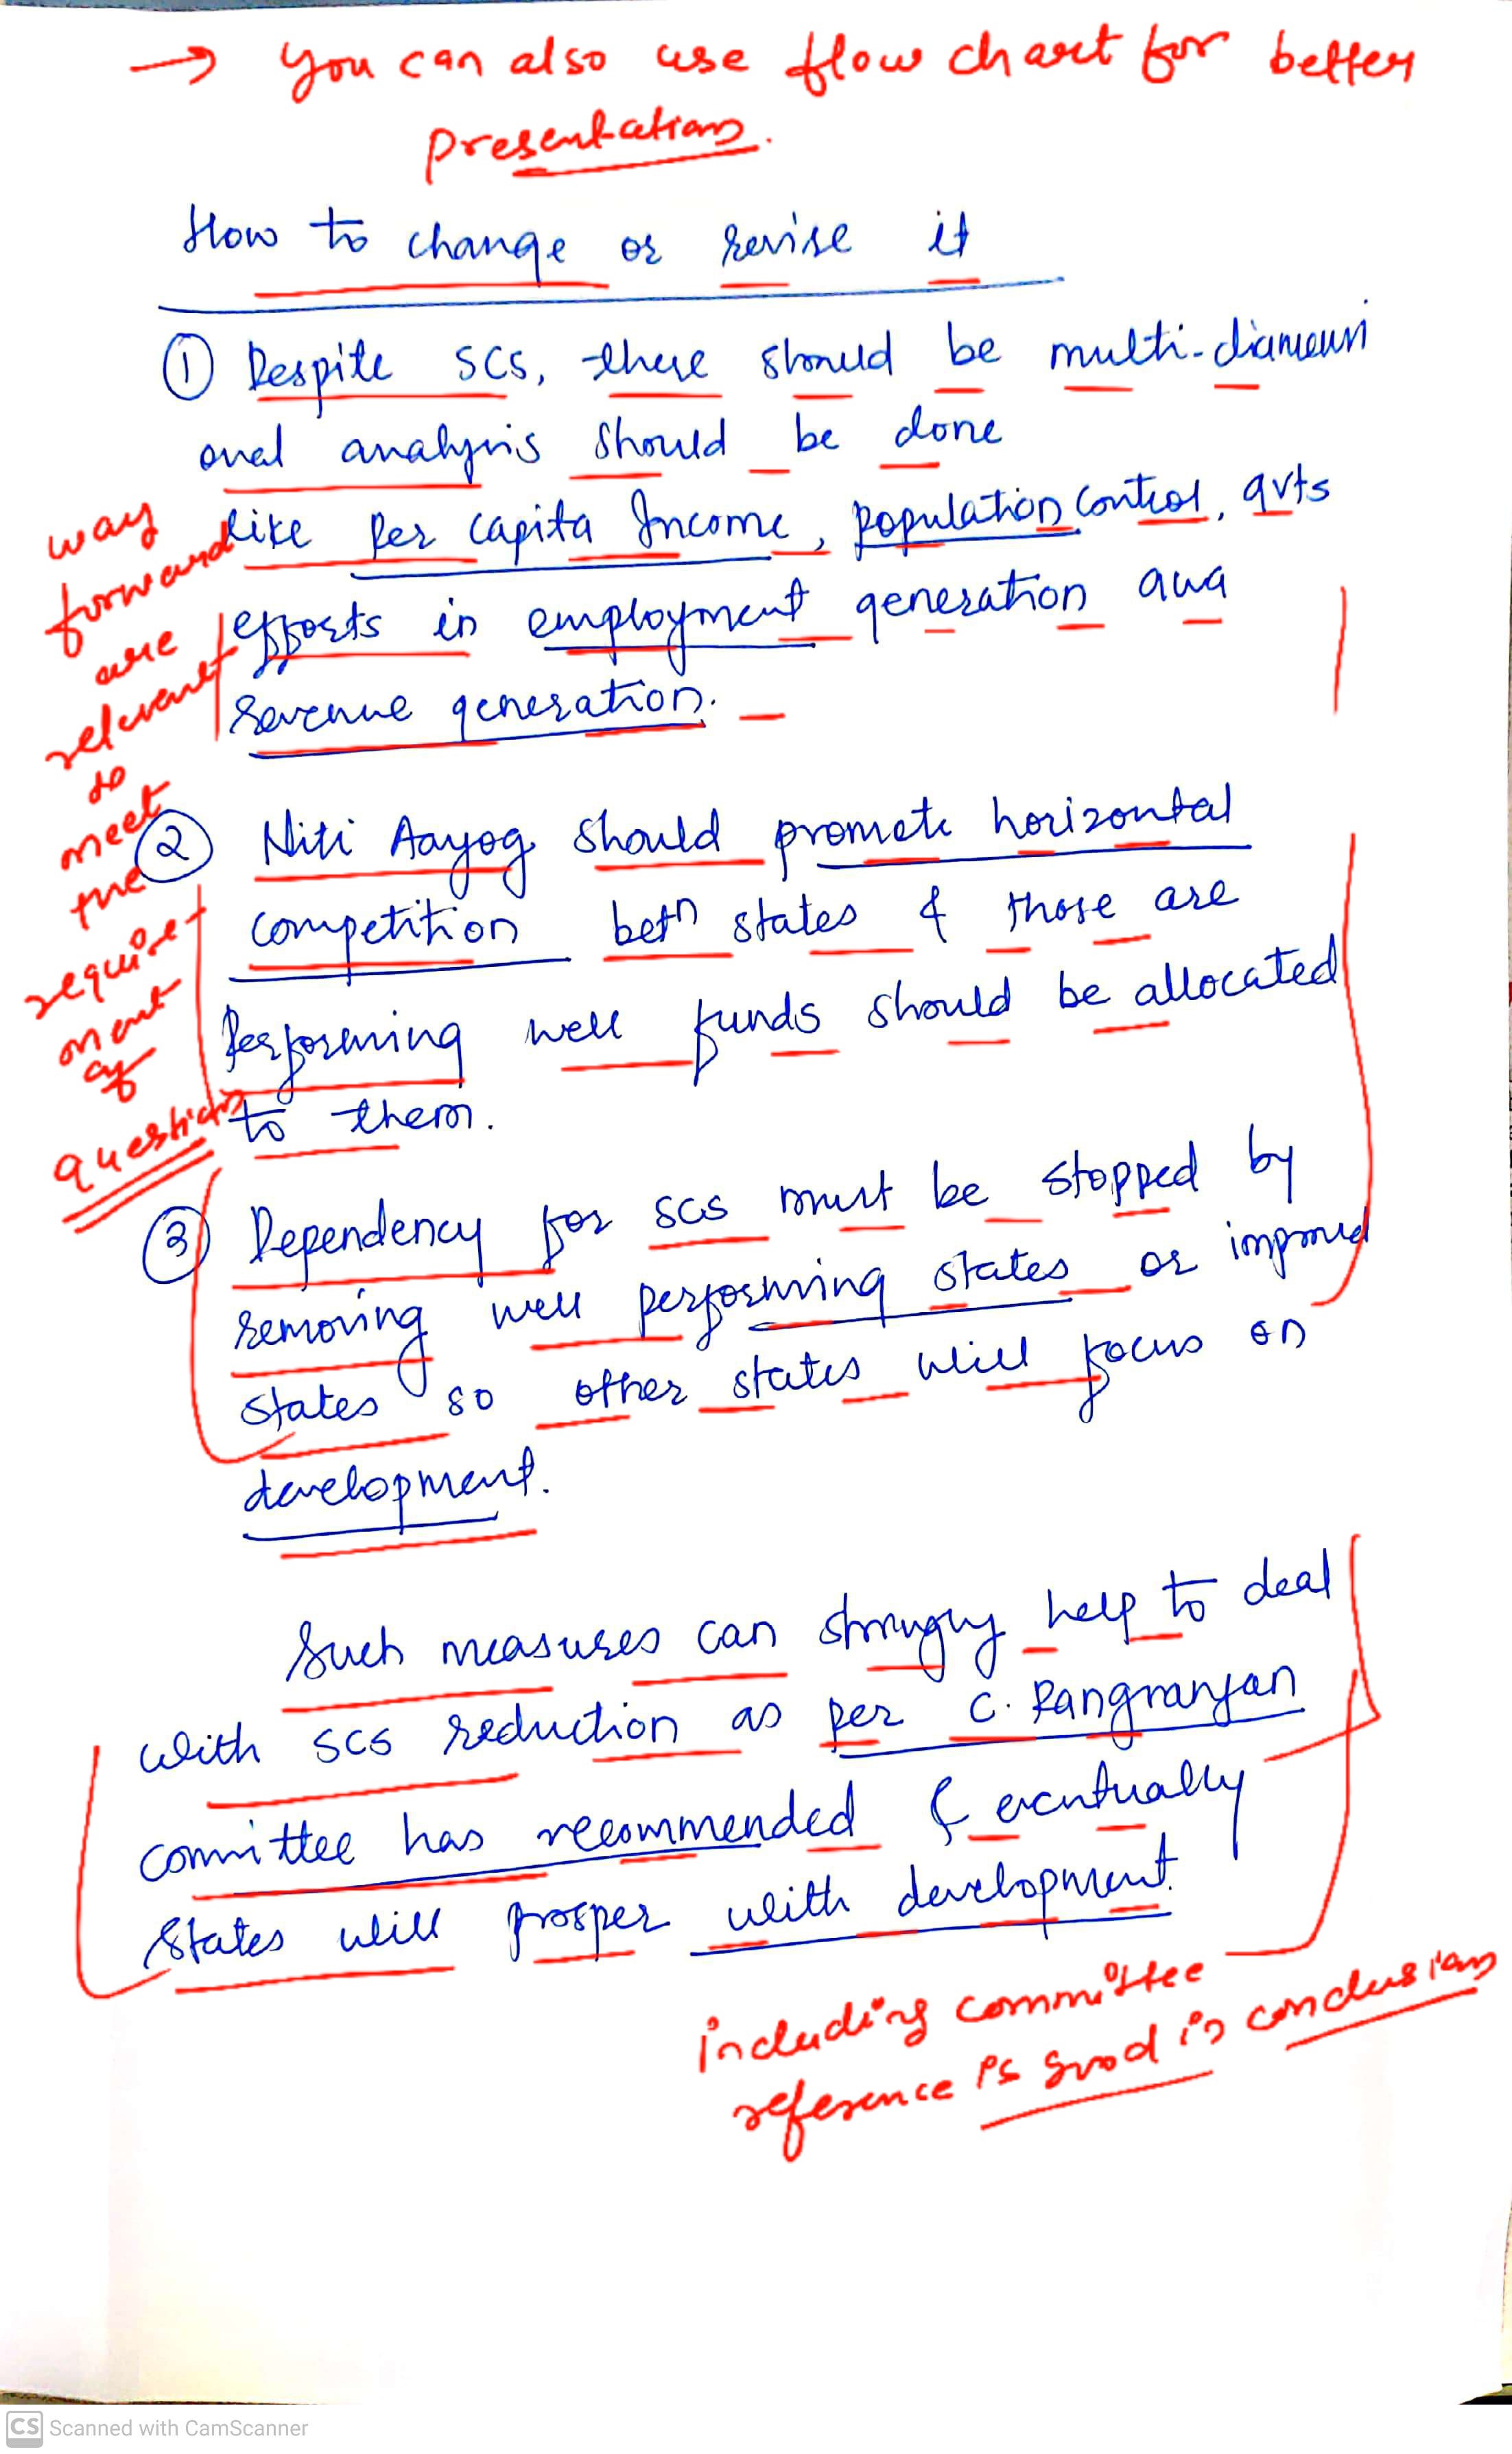 → you can also use flow chart for better
presentation.
How to change or revise it
① Despite SCS, there should be multi-dimensi
onal analysis should be done
like Per capita Income, population control, gvts
efforts in employment generation and
revenue generation.
way
forward
are
relevant
to
meet
the
require-
ment
of
question
② Niti Aayog should promote horizontal
competition betn states & those are
Performing well funds should be allocated
to them.
③ Dependency for SCS must be stopped by
removing well performing states or improved
states so other states will focus on
development.
Such measures can strongly help to deal
with SCS reduction as per C. Rangranjan
committee has recommended & eventually
states will prosper with development.
including committee
reference is good in conclusion
CS Scanned with CamScanner